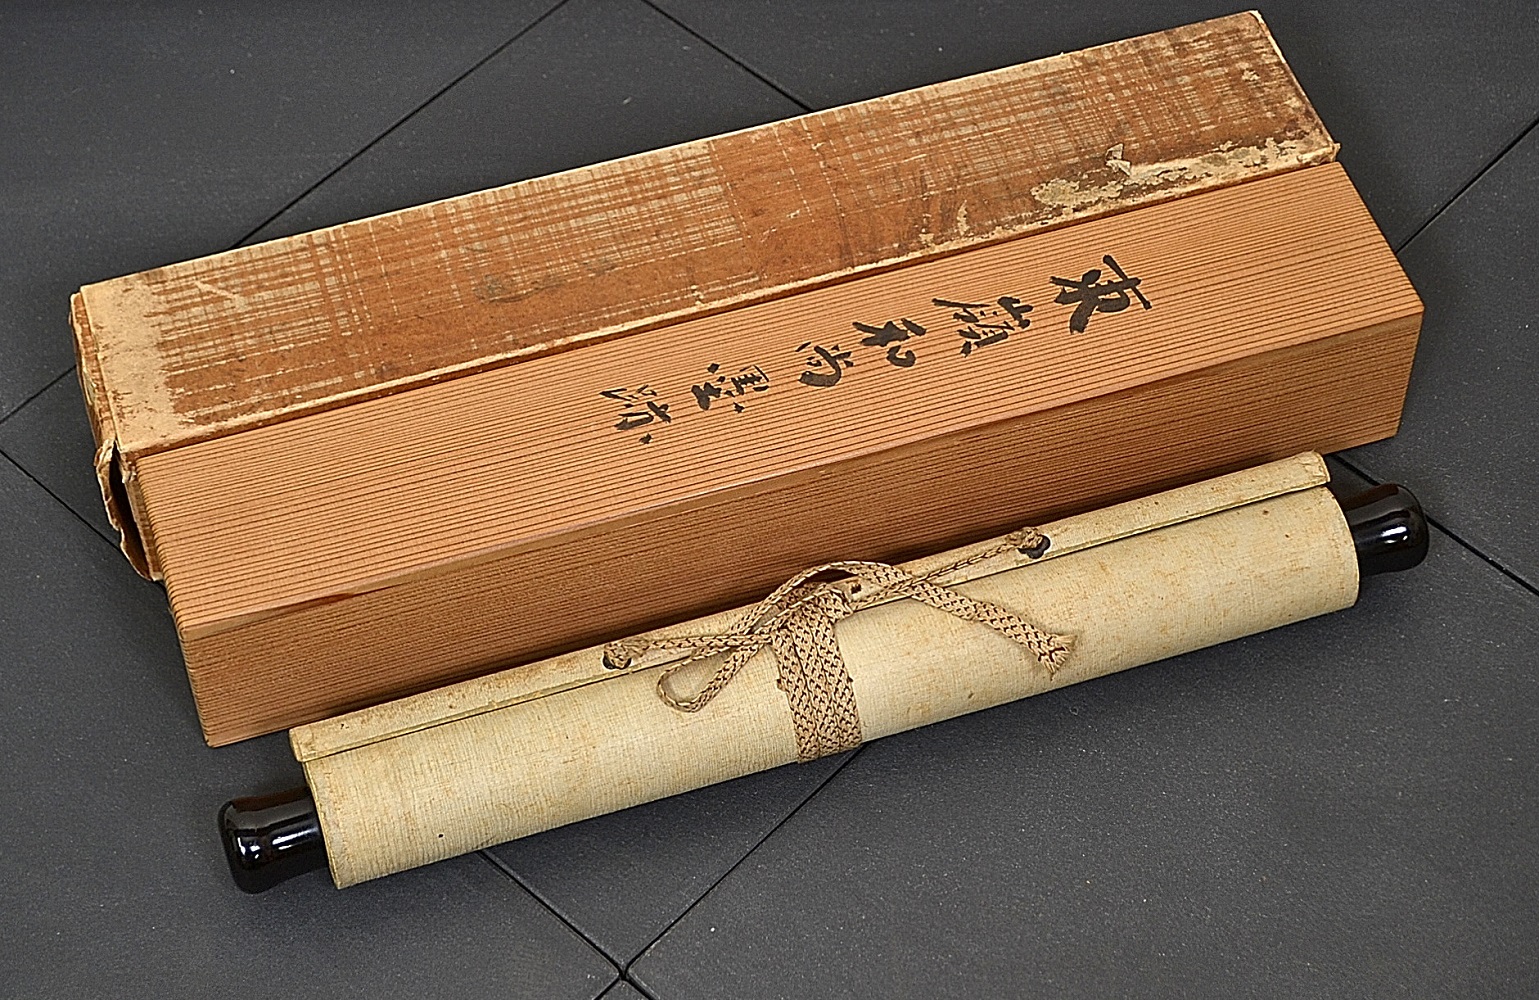 東嶺和尚墨跡